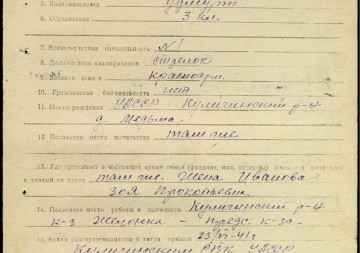 5. Национальность удмурт
6. Образование 3 кл.
7. Военно-учетная специальность № 1
8. Должностная квалификация стрелок
9. Военное звание красноарм.
10. Гражданская специальность нет
11. Место рождения УАССР Кулигинский р-н
д. Медьма.
12. Последнее место жительства там же
13. Где проживает в настоящее время семья
адрес там же. Жена Иванова
Зоя Прокопьевна
14. Последнее место работы и должность Кулигинский р-н
к-з - предс. к-за.
15. Каким райгорвоенкоматом и когда призван 23/VI-41 г
Кулигинским РВК УАССР